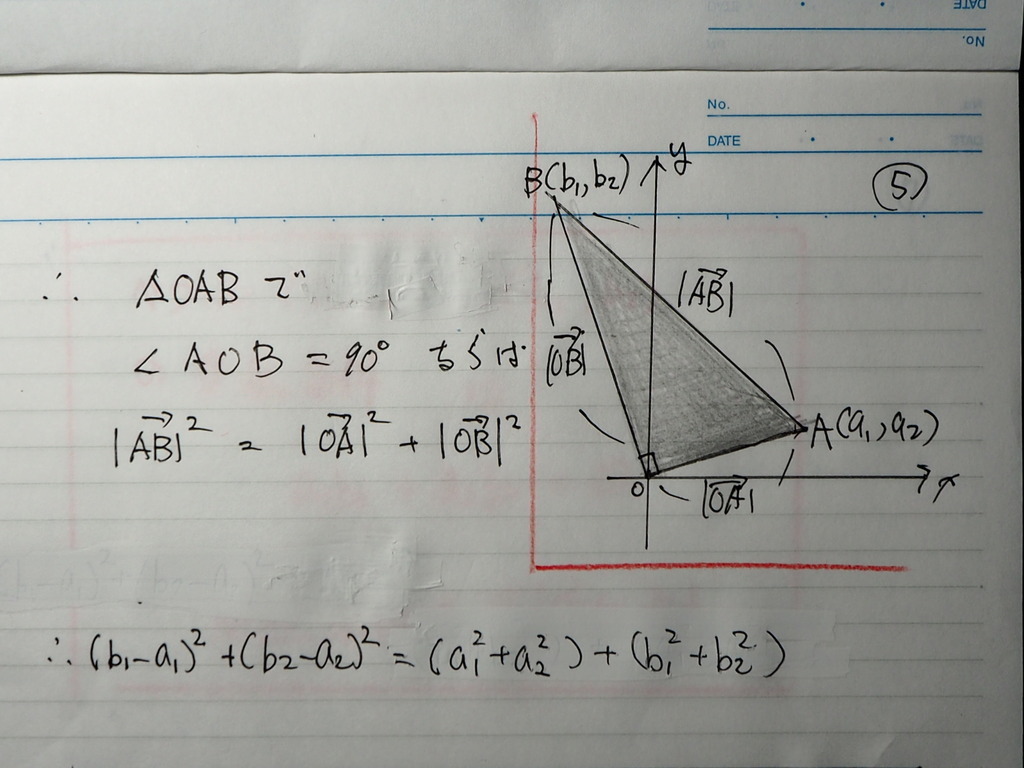 No.
DATE
⑤
∴ △OAB で
∠AOB = 90° ならば
|AB→|² = |OA→|² + |OB→|²
B(b₁, b₂)
y
|AB→|
|OB→|
A(a₁, a₂)
O
|OA→|
x
∴ (b₁-a₁)² + (b₂-a₂)² = (a₁² + a₂²) + (b₁² + b₂²)
DATE
No.